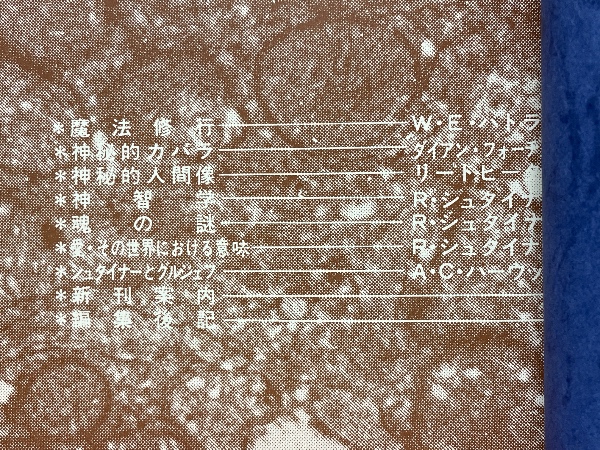 *魔法修行 W・E・バトラ
*神秘的カバラ ダイアン・フォーチ
*神秘的人間像 リードビー
*神智学 R・シュタイナ
*魂の謎 R・シュタイナ
*愛・その世界における意味 R・シュタイナ
*シュタイナーとグルジェフ A・C・ハーウッ
*新刊案内
*編集後記